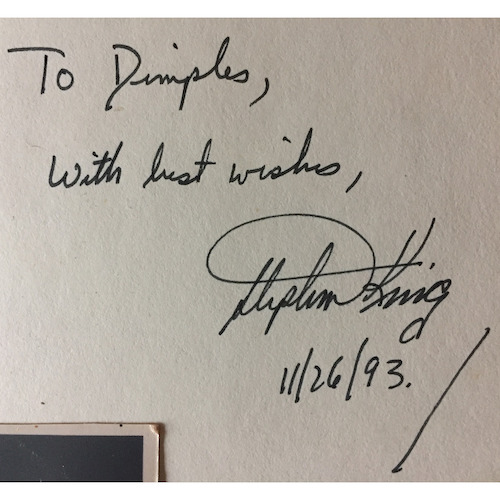 To Dimples,
With best wishes,
Stephen King
11/26/93.